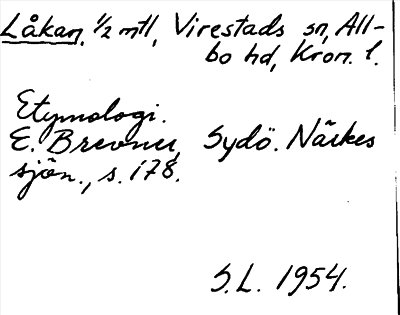 Låkan. ½ mtl, Virestads sn, All-
bo hd, Kron. l.
Etymologi.
E. Brevner, Sydö. Närkes
sjön., s. 178.
S.L. 1954.